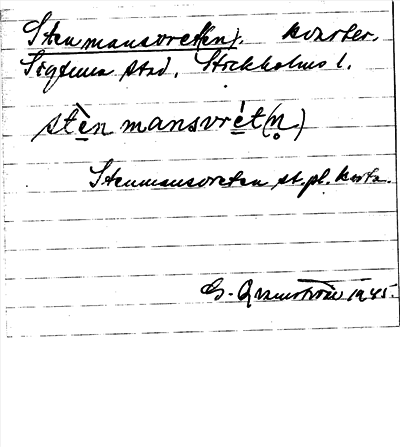 Stenmansvret(en). kvarter.
Sigtuna stad. Stockholms l.
stèn mansvrét(n̥)
Stenmansvreten st.pl. karta.
G. Granström 1945.